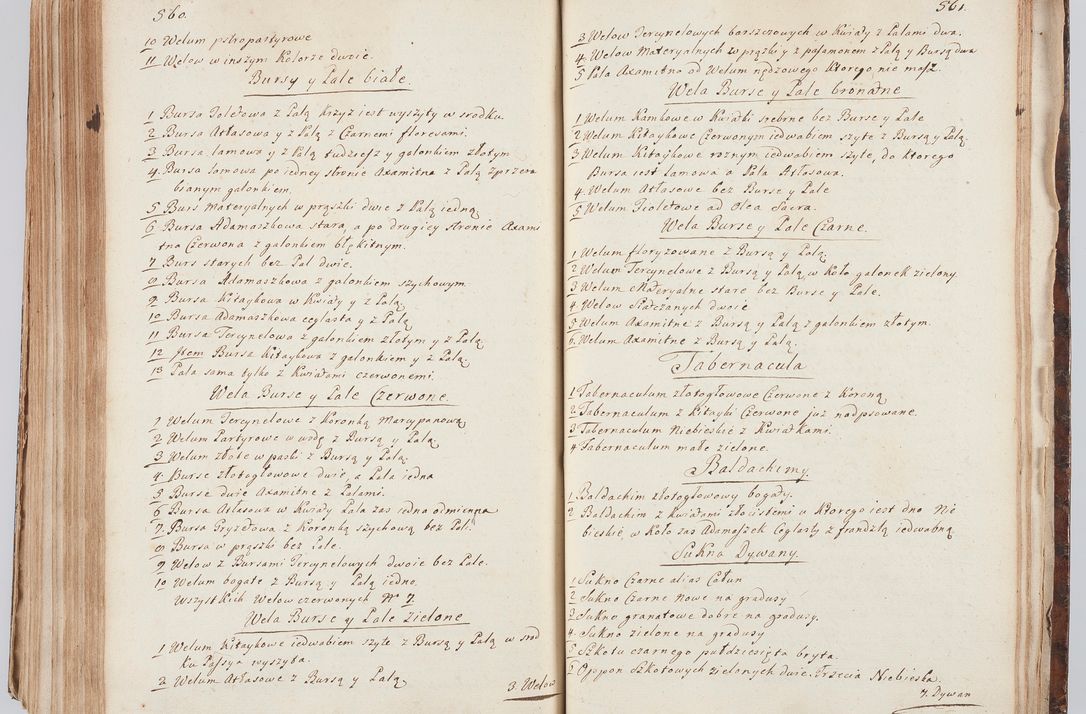 560.
10 Welum pstropartyrowe
11 Welow w inszym kolorze dwoie.
Bursy y Pale białe.
1 Bursa Toletowa z Palą krzyż iest wyszyty w srodku
2 Bursa Atłasowa y z Palą z Czarnemi floresami.
3 Bursa lamowa y z Palą tudziesz y galonkiem złotym
4. Bursa lamowa po iedney stronie Axamitna z Palą y przera
bianym galonkiem.
5 Burs materyalnych w prązki dwie z Palą iedną
6 Bursa Adamaszkowa stara, a po drugiey stronie Axami
tna Czerwona z galonkiem błękitnym.
7 Burs starych bez Pal dwie.
8 Bursa Adamaszkowa z galonkiem szychowym
9 Bursa Kitaykowa w Kwiaty y z Palą
10 Bursa Adamaszkowa ceglasta y z Palą
11 Bursa Tercynelowa z galonkiem złotym y z Palą
12 Item Bursa Kitaykowa z galonkiem y z Palą.
13 Pala sama tylko z Kwiatami czerwonemi.
Wela Burse y Pale Czerwone.
1 Welum Tercynelowe z Koronką Marcypanową
2 Welum Partyrowe w wodę z Bursą y Palą
3 Welum złote w paski z Bursą y Palą.
4 Burse złotogłowowe dwie, a Pala iedna
5 Burse dwie Axamitne z Palami.
6 Bursa Atłasowa w Kwiaty Pala zas iedna odmienna
7. Bursa Gryzetowa z Koronką szychową bez Pali.
8 Bursa w prązki bez Pale.
9 Welow z Bursami Tercynelowych dwoie bez Pale.
10 Welum bogate z Bursą y Palą iedno.
Wszystkich Welow czerwonych Nr 7
Wela Burse y Pale Zielone
1 Welum Kitaykowe iedwabiem szyte z Bursą y Palą w srod
ku Passya wyszyta.
2 Welum Atłasowe z Bursą y Palą
3. Welow
561.
3 Welow Tercynelowych barszczowych w Kwiaty z Palami dwa.
4. Welow Materyalnych w prązki y z pasamonem z Palą y Bursą dwa
5 Pala Axamitna od Welum nędzowego ktorego nie masz.
Wela Burse y Pale bronatne
1 Welum Kamkowe w Kwiatki srebrne bez Burse y Pale
2 Welum Kitaykowe Czerwonym iedwabiem szyte z Bursą y Palą.
3 Welum Kitaykowe roznym iedwabiem szyte, do ktorego
Bursa iest Lamowa a Pala Atłasowa.
4 Welum Atłasowe bez Burse y Pale
5 Welum Fioletowe ad Olea Sacra.
Wela Burse y Pale Czarne.
1 Welum floryzowane z Bursą y Palą.
2 Welum Tercynelowe z Bursą y Palą, w koło galonek zielony
3 Welum Materyalne stare bez Burse y Pale.
4 Welow Siatczanych dwoie
5 Welum Axamitne z Bursą y Palą z galonkiem złotym.
6 Welum Axamitne z Bursą y Palą.
Tabernacula
1 Tabernaculum złotogłowowe Czerwone z Koroną
2 Tabernaculum z Kitayki Czerwone już nadpsowane.
3 Tabernaculum Niebieskie z Kwiatkami.
4 Tabernaculum małe zielone.
Baldachimy.
1 Baldachim złotogłowowy bogaty.
2 Baldachim z kwiatami złocistemi u ktorego iest dno Nie
bieskie, w koło zas Adamaszek Ceglasty z frandzlą iedwabną
Sukna Dywany.
1 Sukno Czarne alias Całun
2 Sukno Czarne nowe na gradusy
3 Sukno granatowe dobre na gradusy.
4. Sukno zielone na gradusy
5 Szkotu czarnego pułdziesięta bryta
6 Oppon Szkotowych zielonych dwie. Trzecia Niebieska.
7. Dywan